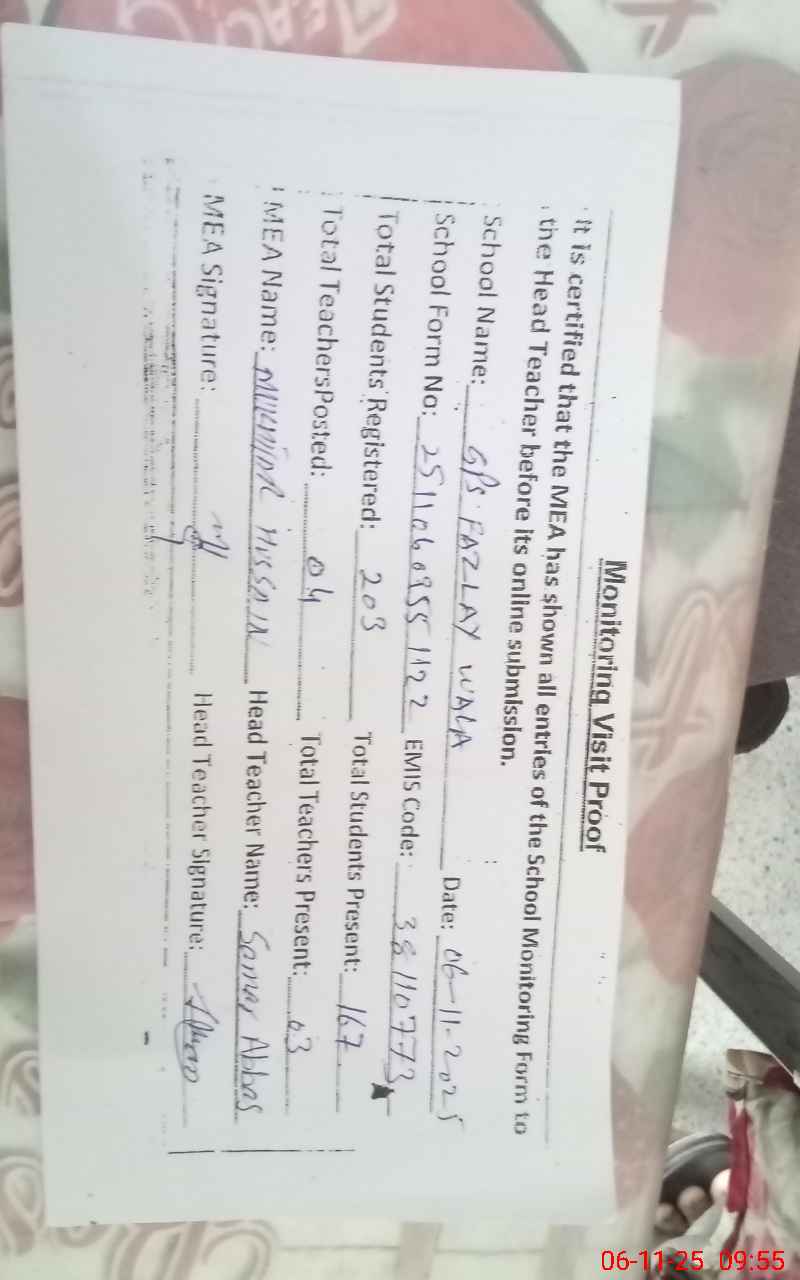 Monitoring Visit Proof
It is certified that the MEA has shown all entries of the School Monitoring Form to
the Head Teacher before its online submission.
School Name: GPS FAZLAY WALA Date: 06-11-2025
School Form No: 25110609551122 EMIS Code: 38110773
Total Students Registered: 203 Total Students Present: 167
Total TeachersPosted: 04 Total Teachers Present: 03
MEA Name: MUKHTAR HUSSAIN Head Teacher Name: Samar Abbas
MEA Signature: Head Teacher Signature:
06-11-25 09:55